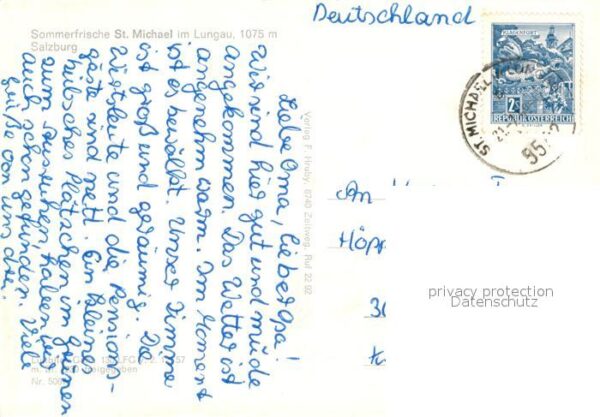 Sommerfrische St. Michael im Lungau, 1075 m
Salzburg
Deutschland
KLAGENFURT
2S
REPUBLIK ÖSTERREICH
ST. MICHAEL
Liebe Oma, lieber Opa!
Wir sind hier gut und müde
angekommen. Das Wetter ist
angenehm warm. Im Moment
ist es bewölkt. Unser Zimmer
ist groß und geräumig. Die
Wirtsleute und die Pensions-
gäste sind nett. Ein kleines
hübsches Plätzchen im Grünen
zum Ausruhen haben wir
auch schon gefunden. Viele
Grüße von uns drei.
Verlag F. Hruby, 8740 Zeltweg, Ruf 22 92
An
Höpp
privacy protection
Datenschutz